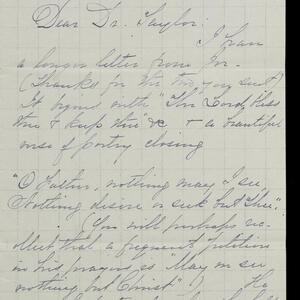 Dear Dr. Taylor:
I have
a longer letter from Mr.
(Thanks for the two you sent)
It begins with "The Lord bless
thee & keep thee" &c & a beautiful
verse of poetry closing
"O Father, nothing may I see,
Nothing desire or seek but Thee".
(You will perhaps re-
collect that a frequent petition
in his prayer is "May we see
nothing but Christ") He